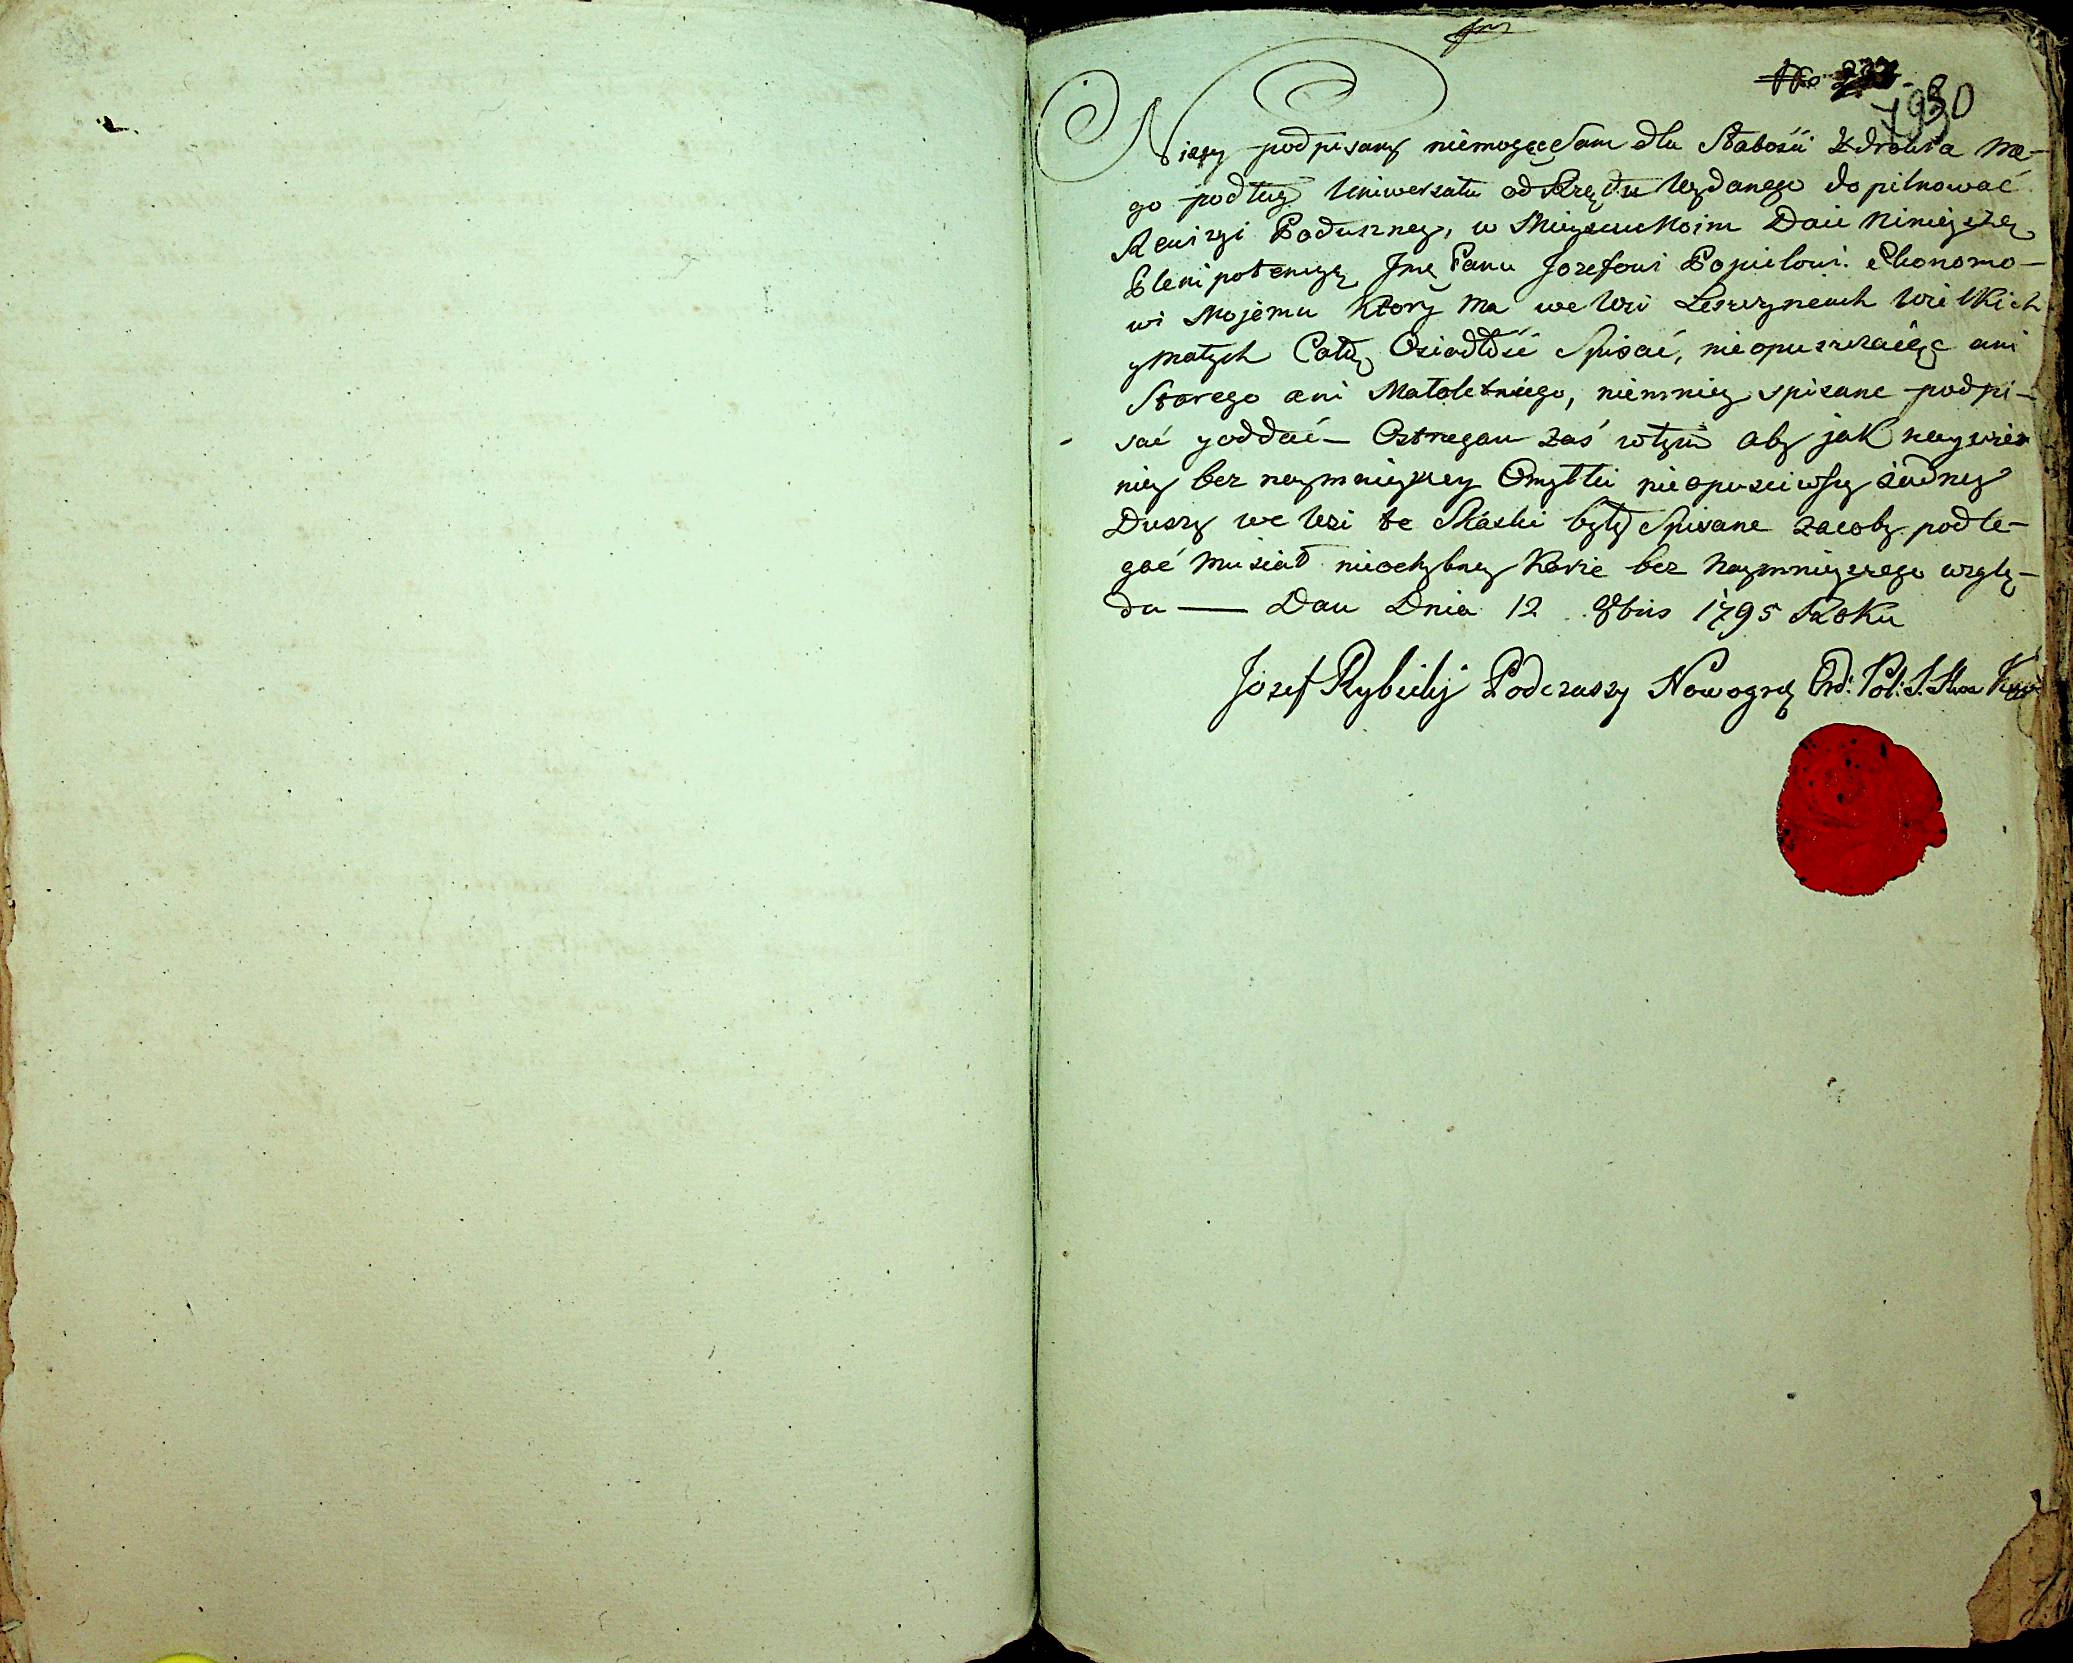 1930
Niżey podpisany niemogąc Sam dla Słabości Zdrowia me-
go podług Uniwersału od Rządu Wydanego dopilnować
Rewizyi Poduszney, w Mieyscu Moim Daie Ninieyszą
Plenipotencyę Jmę Panu Jozefowi Popielowi Ekonomo-
wi Mojemu Ktory Ma we Wsi Leszczyncach Wielkich
y Małych Całą Osiadłość Spisać, nieopuszczaiąc ani
Starego ani Małoletniego, niemniey spisane podpi-
sać y oddać — Ostrzegam zaś wtym aby jak naywier
niey bez naymnieyszey Omyłki nieopusciwszy żadney
Duszy we Wsi te Skaski były Spisane zacoby podle-
gać Musiał nieochybney Karze bez Naymnieyszego wzglę-
du — Dan Dnia 12 8bris 1795 Roku
Jozef Rybicky Podczaszy Nowogrod Ord: Pol: S. Kaw